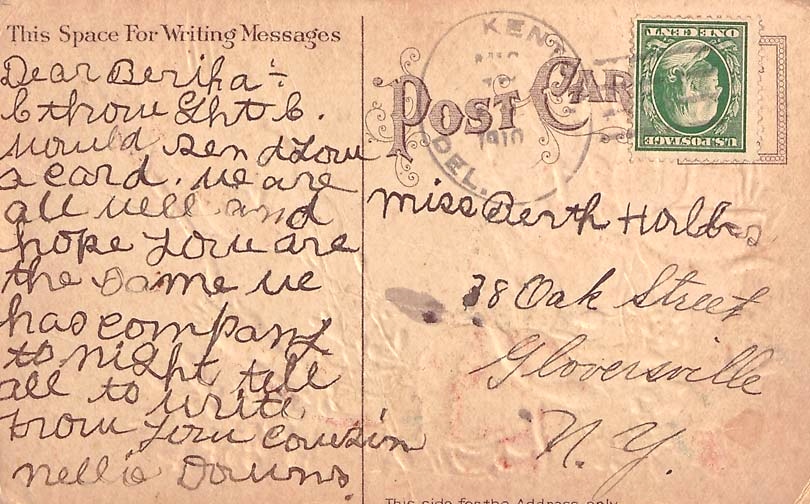 This Space For Writing Messages
Dear Bertha:
I thought I
would send you
a card. we are
all well and
hope you are
the same we
has company
to night tell
all to write
from your cousin
nellie Downs.
POST CARD
KENT
10
1910
DEL.
ONE CENT
U.S. POSTAGE
miss Berth
38 Oak Street
Gloversville
N.Y.
This side for the Address only